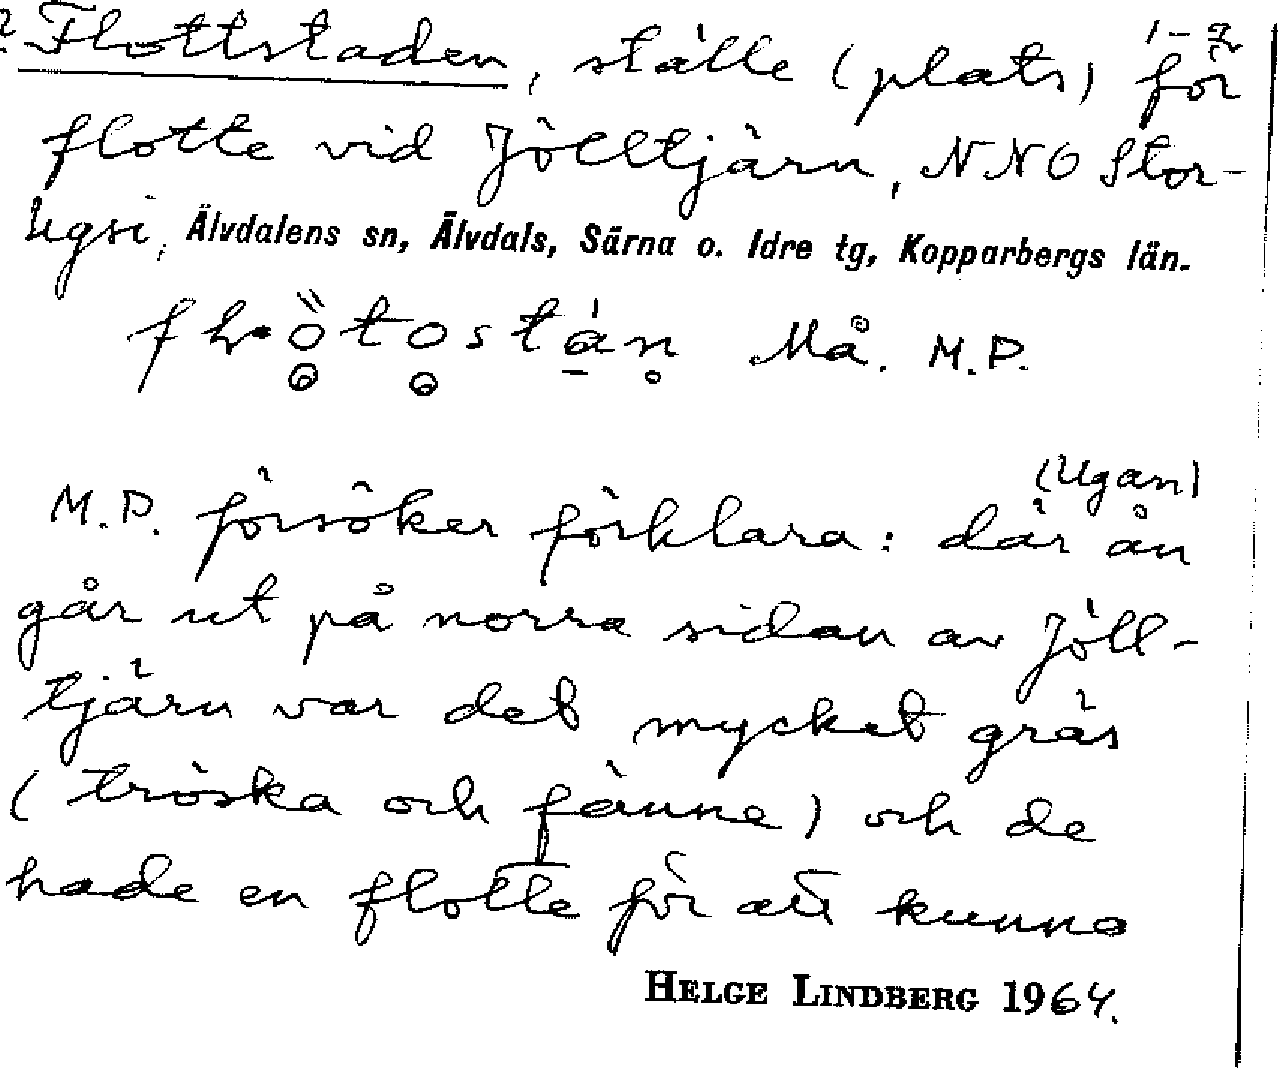 Flottstaden, ställe (plats) för
1-2
flotte vid Jölltjärn, NNO Stor-
Ugsi, Älvdalens sn, Älvdals, Särna o. Idre tg, Kopparbergs län.
Må. M.P.
(Ugan)
M.P. försöker förklara: där ån
går ut på norra sidan av Jöll-
tjärn var det mycket gräs
(tröska och fänne) och de
hade en flotte för att kunna
HELGE LINDBERG 1964.